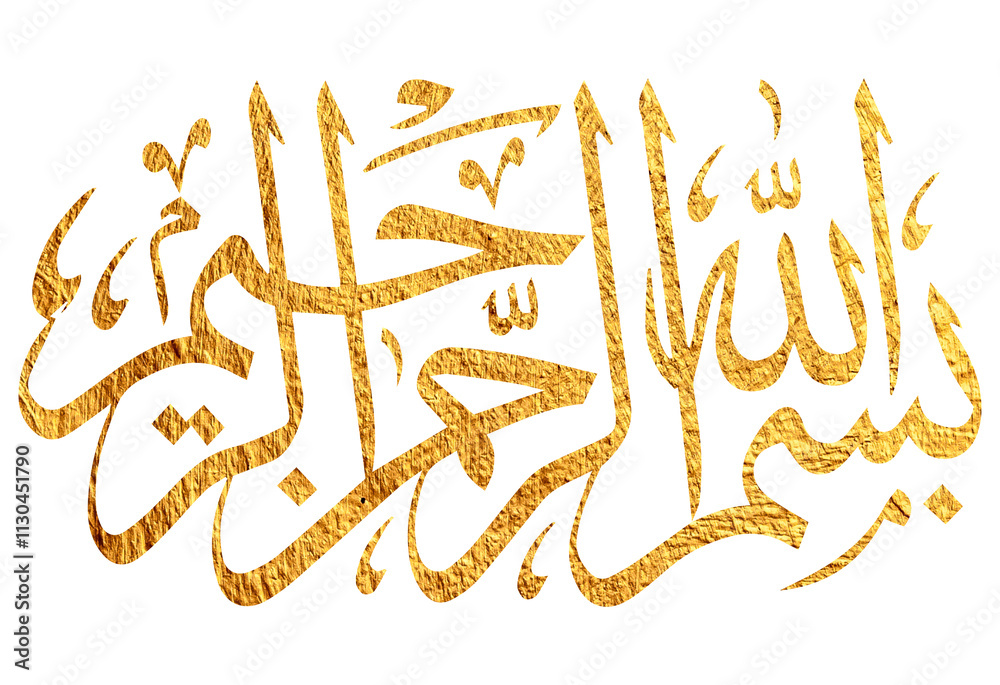 بسم الله الرحمن الرحيم
Adobe Stock | #1130451790